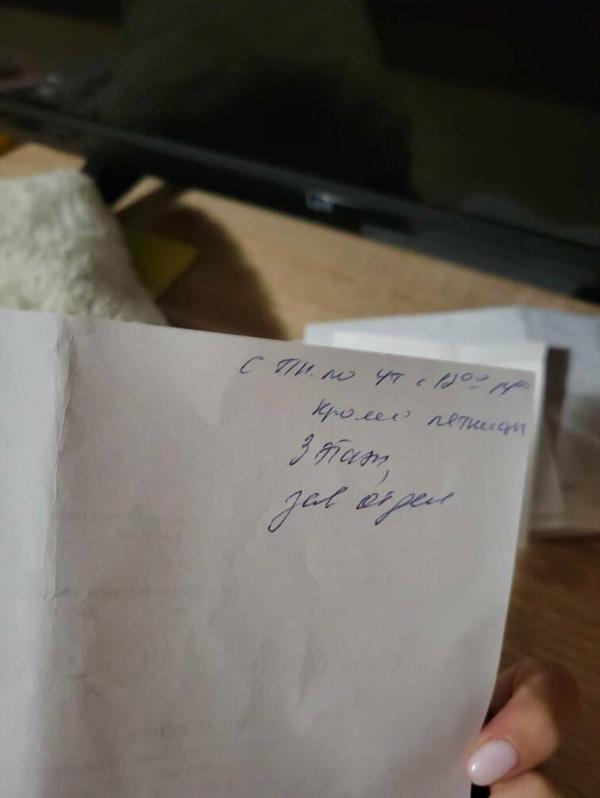 с пн. по чт с 12⁰⁰ до
кроме пятницы
3 этаж,
зав отдел